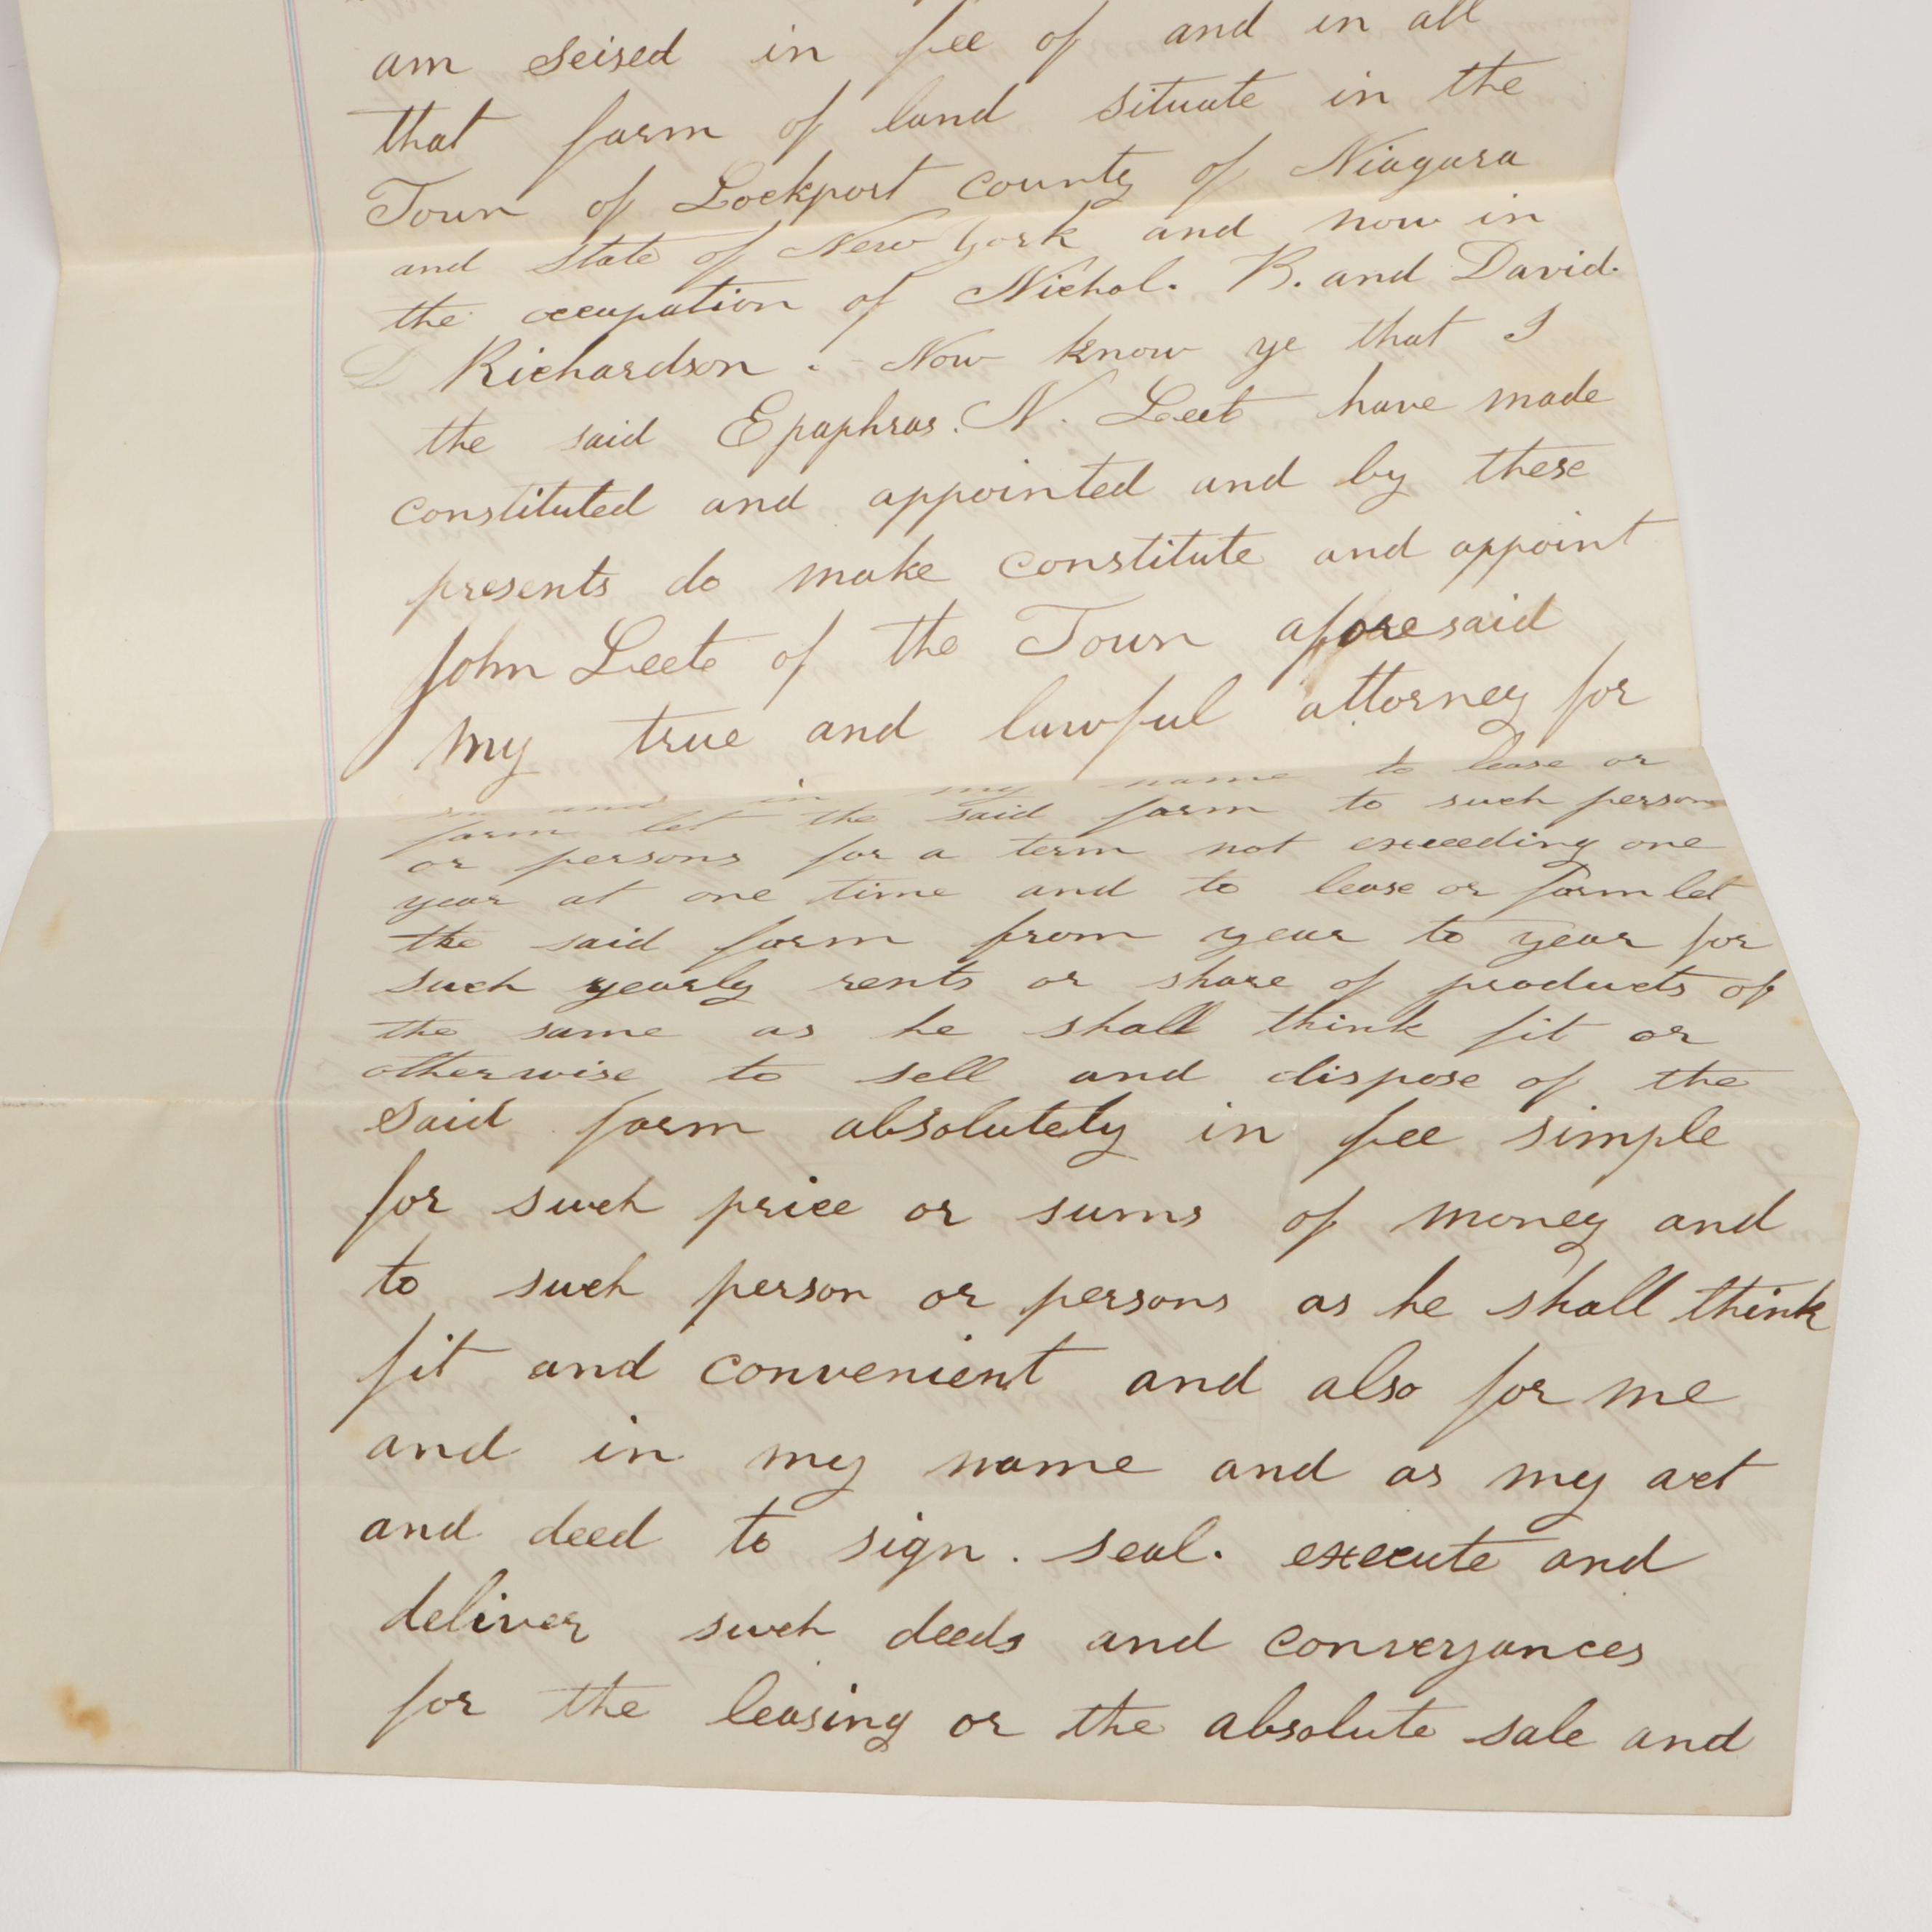 am seised in fee of and in all
that farm of land situate in the
Town of Lockport County of Niagara
and State of New York and now in
the occupation of Nichol. B. and David.
D Richardson. Now know ye that I
the said Epaphras. N. Leet have made
constituted and appointed and by these
presents do make constitute and appoint
John Leete of the Town aforesaid
my true and lawful attorney for
and in my name to lease or
farm let the said farm to such person
or persons for a term not exceeding one
year at one time and to lease or farm let
the said farm from year to year for
such yearly rents or share of products of
the same as he shall think fit or
otherwise to sell and dispose of the
said farm absolutely in fee simple
for such price or sums of money and
to such person or persons as he shall think
fit and convenient and also for me
and in my name and as my act
and deed to sign. seal. execute and
deliver such deeds and conveyances
for the leasing or the absolute sale and